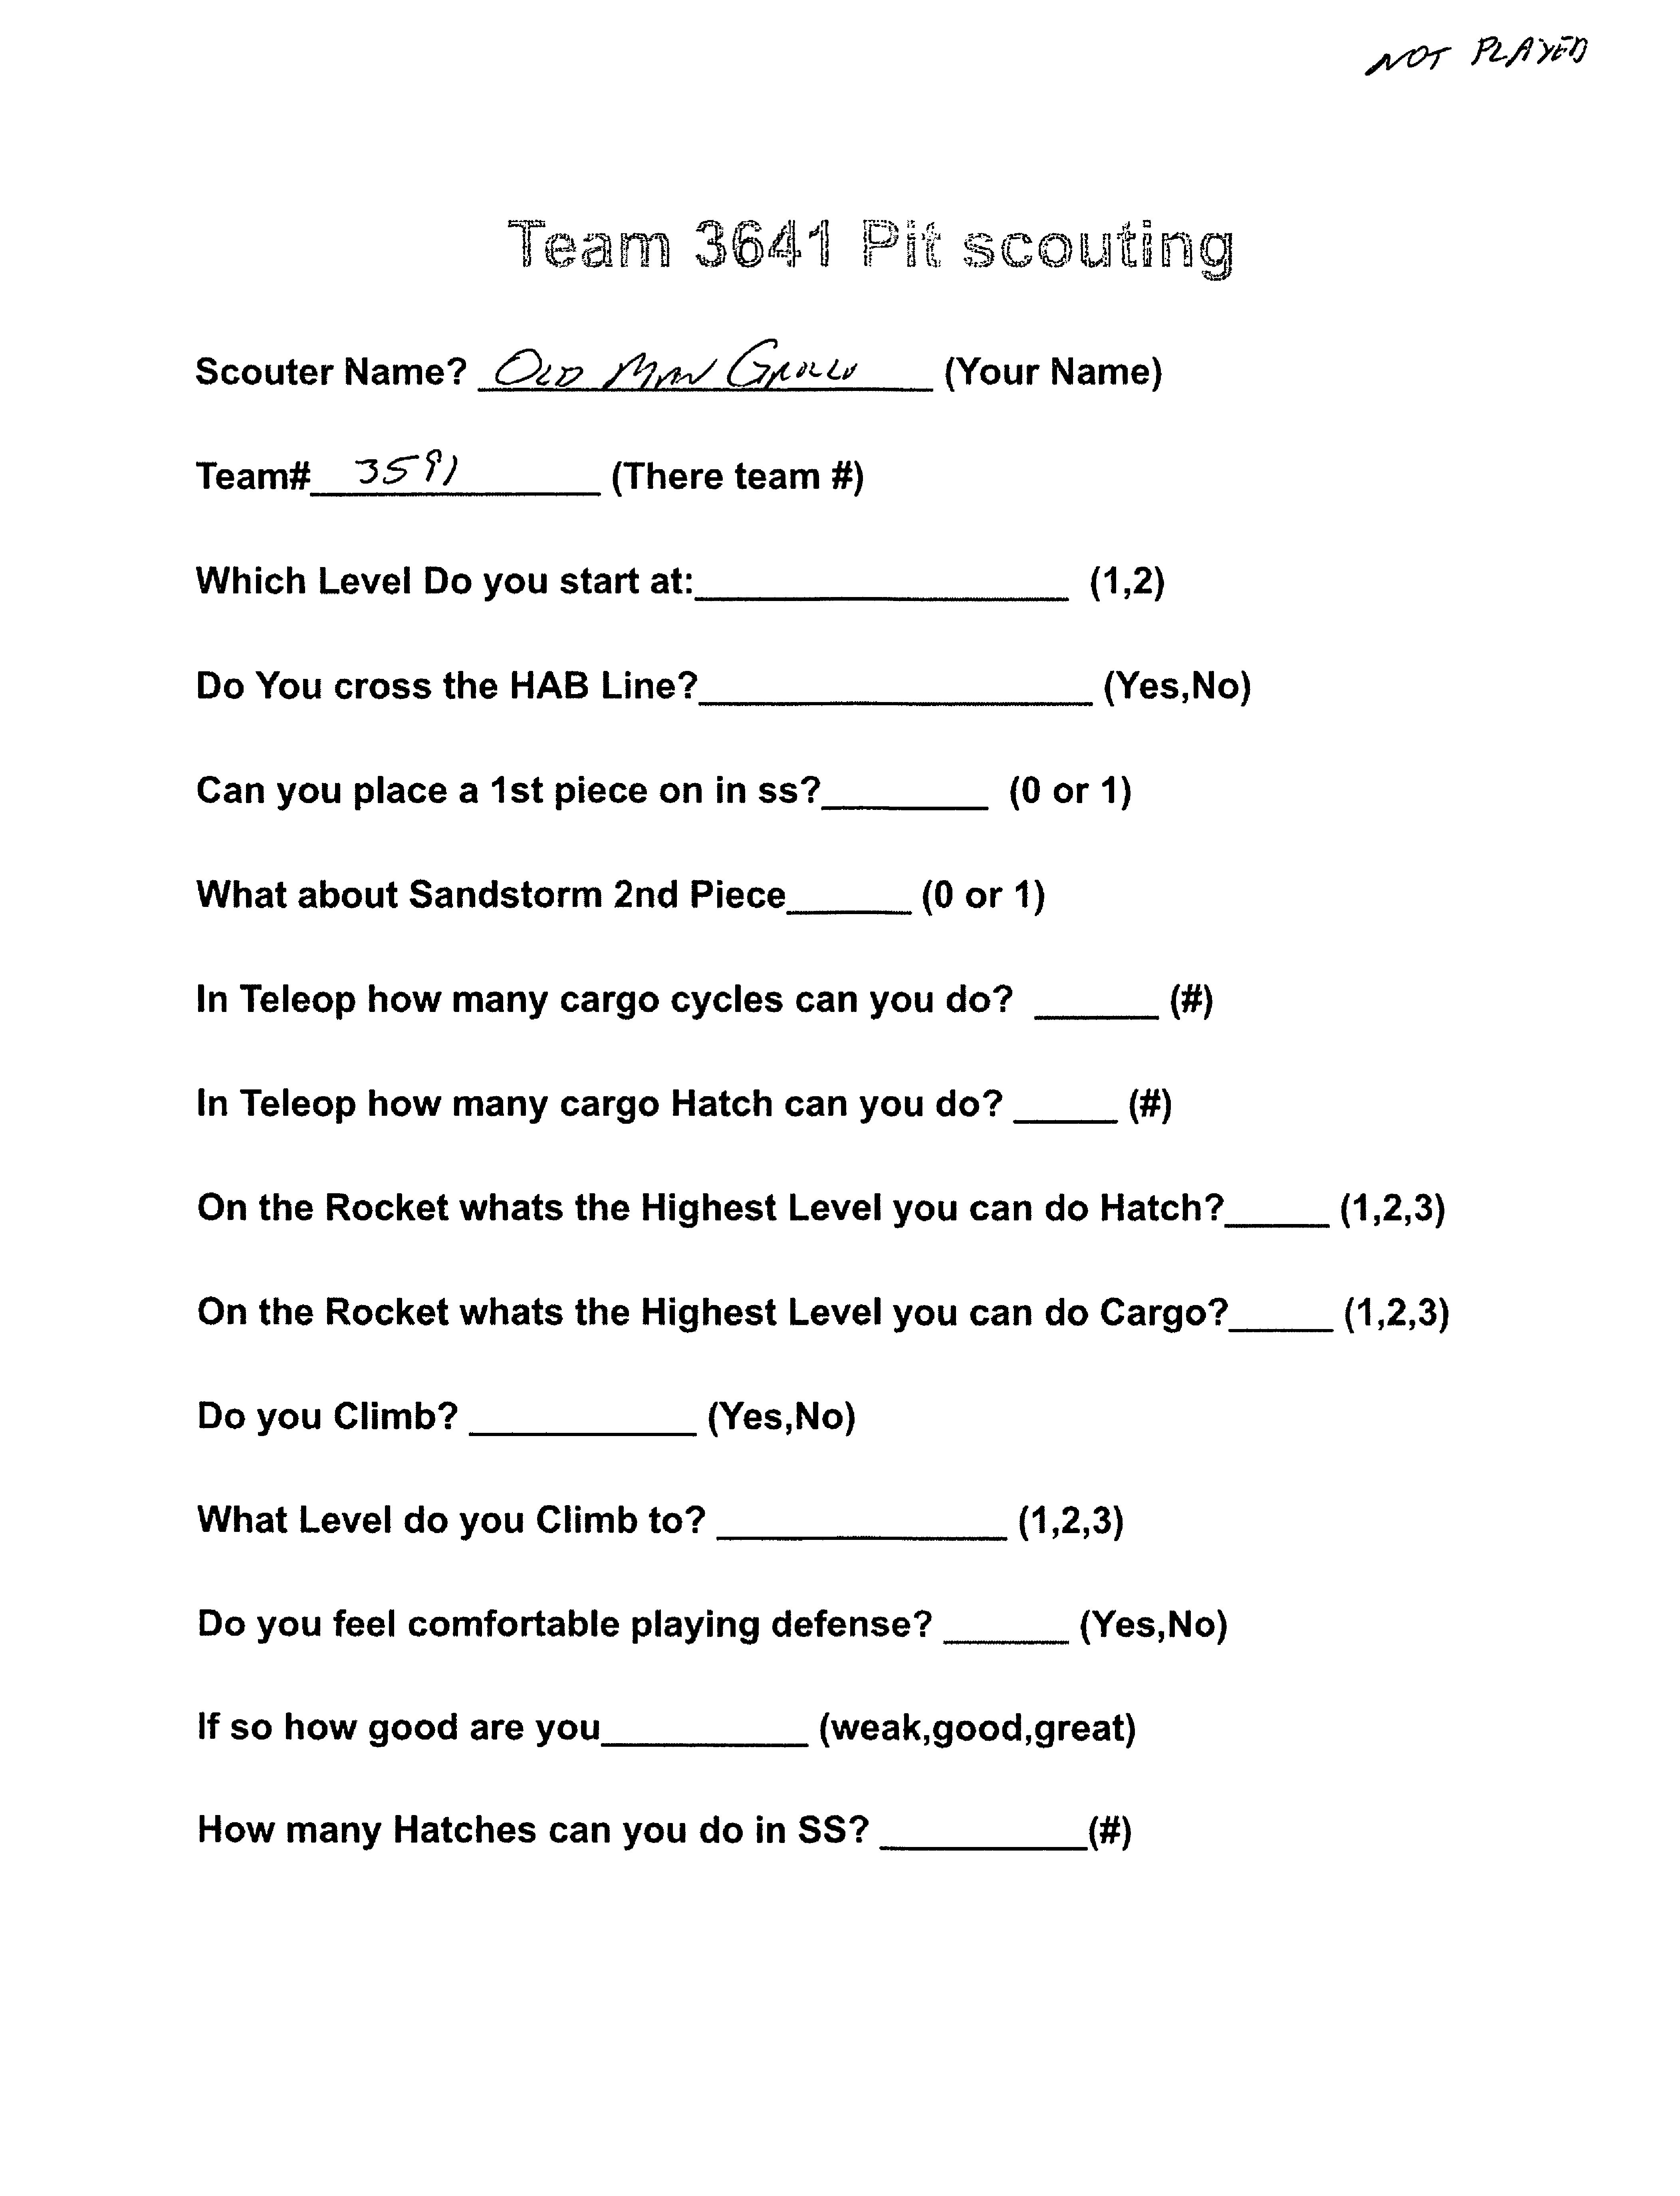 NOT PLAYED
Team 3641 Pit scouting
Scouter Name? OLD MAN (Your Name)
Team# 3591 (There team #)
Which Level Do you start at:__________________ (1,2)
Do You cross the HAB Line?___________________ (Yes,No)
Can you place a 1st piece on in ss?________ (0 or 1)
What about Sandstorm 2nd Piece______ (0 or 1)
In Teleop how many cargo cycles can you do? ______ (#)
In Teleop how many cargo Hatch can you do? _____ (#)
On the Rocket whats the Highest Level you can do Hatch?_____ (1,2,3)
On the Rocket whats the Highest Level you can do Cargo?_____ (1,2,3)
Do you Climb? ___________ (Yes,No)
What Level do you Climb to? ______________ (1,2,3)
Do you feel comfortable playing defense? ______ (Yes,No)
If so how good are you__________ (weak,good,great)
How many Hatches can you do in SS? __________(#)